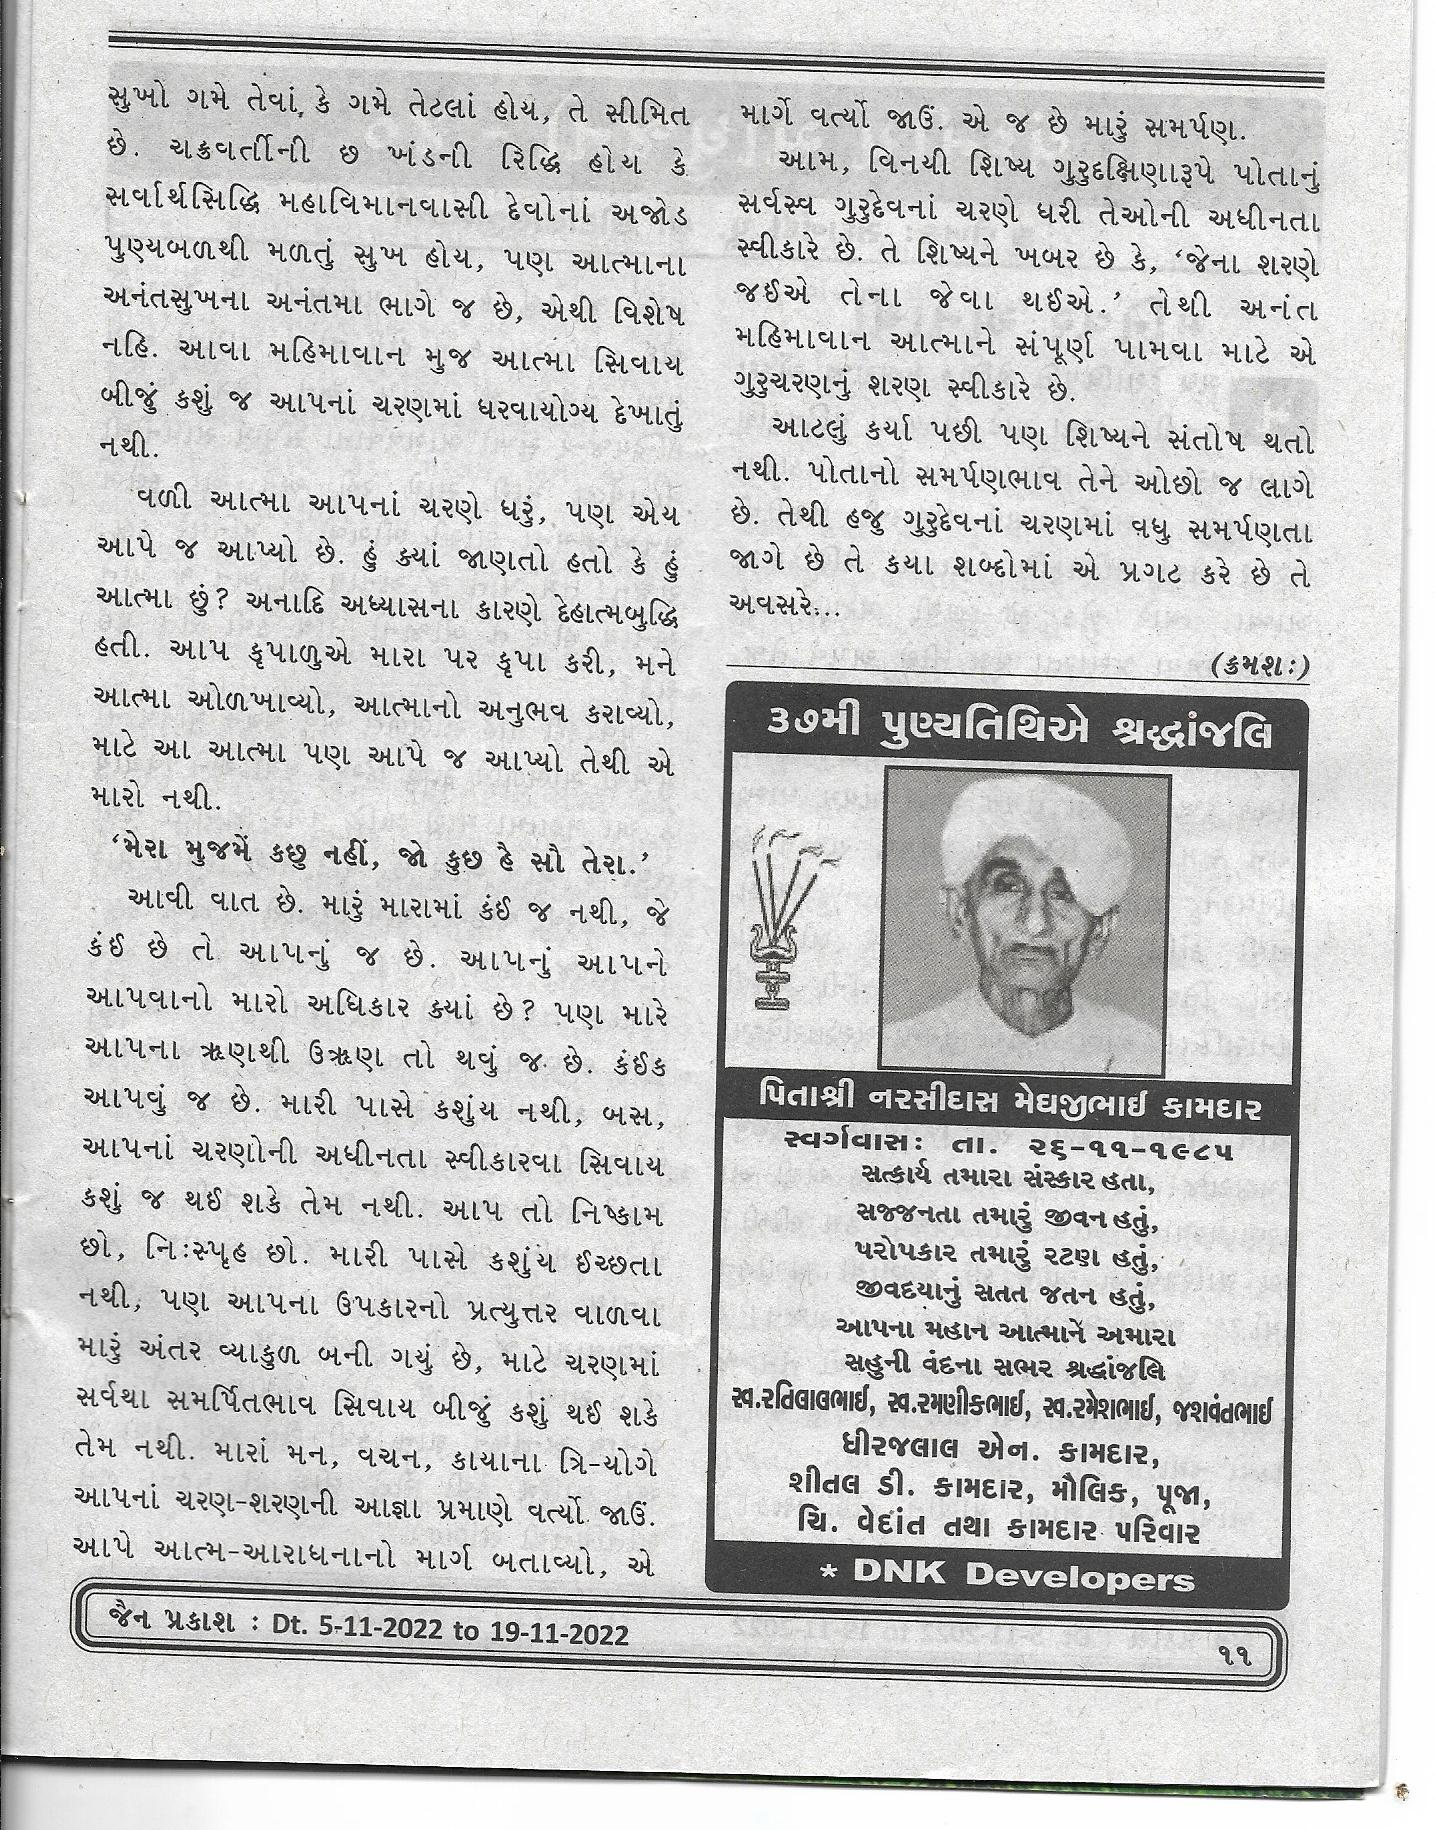 સુખો ગમે તેવાં, કે ગમે તેટલાં હોય, તે સીમિત
છે. ચક્રવર્તીની છ ખંડની રિદ્ધિ હોય કે
સર્વાર્થસિદ્ધિ મહાવિમાનવાસી દેવોનાં અજોડ
પુણ્યબળથી મળતું સુખ હોય, પણ આત્માના
અનંતસુખના અનંતમા ભાગે જ છે, એથી વિશેષ
નહિ. આવા મહિમાવાન મુજ આત્મા સિવાય
બીજું કશું જ આપનાં ચરણમાં ધરવાયોગ્ય દેખાતું
નથી.
વળી આત્મા આપનાં ચરણે ધરું, પણ એય
આપે જ આપ્યો છે. હું ક્યાં જાણતો હતો કે હું
આત્મા છું? અનાદિ અધ્યાસના કારણે દેહાત્મબુદ્ધિ
હતી. આપ કૃપાળુએ મારા પર કૃપા કરી, મને
આત્મા ઓળખાવ્યો, આત્માનો અનુભવ કરાવ્યો,
માટે આ આત્મા પણ આપે જ આપ્યો તેથી એ
મારો નથી.
‘મેરા મુજમેં કછુ નહીં, જો કુછ હૈ સૌ તેરા.’
આવી વાત છે. મારું મારામાં કંઈ જ નથી, જે
કંઈ છે તો આપનું જ છે. આપનું આપને
આપવાનો મારો અધિકાર ક્યાં છે? પણ મારે
આપના ઋણથી ઉઋણ તો થવું જ છે. કંઈક
આપવું જ છે. મારી પાસે કશુંય નથી, બસ,
આપનાં ચરણોની અધીનતા સ્વીકારવા સિવાય
કશું જ થઈ શકે તેમ નથી. આપ તો નિષ્કામ
છો, નિઃસ્પૃહ છો. મારી પાસે કશુંય ઈચ્છતા
નથી, પણ આપના ઉપકારનો પ્રત્યુત્તર વાળવા
મારું અંતર વ્યાકુળ બની ગયું છે, માટે ચરણમાં
સર્વથા સમર્પિતભાવ સિવાય બીજું કશું થઈ શકે
તેમ નથી. મારાં મન, વચન, કાયાના ત્રિ-યોગે
આપનાં ચરણ-શરણની આજ્ઞા પ્રમાણે વર્ત્યો જાઉં.
આપે આત્મ-આરાધનાનો માર્ગ બતાવ્યો, એ
માર્ગે વર્ત્યો જાઉં. એ જ છે મારું સમર્પણ.
આમ, વિનયી શિષ્ય ગુરુદક્ષિણારૂપે પોતાનું
સર્વસ્વ ગુરુદેવનાં ચરણે ધરી તેઓની અધીનતા
સ્વીકારે છે. તે શિષ્યને ખબર છે કે, ‘જેના શરણે
જઈએ તેના જેવા થઈએ.’ તેથી અનંત
મહિમાવાન આત્માને સંપૂર્ણ પામવા માટે એ
ગુરુચરણનું શરણ સ્વીકારે છે.
આટલું કર્યા પછી પણ શિષ્યને સંતોષ થતો
નથી. પોતાનો સમર્પણભાવ તેને ઓછો જ લાગે
છે. તેથી હજુ ગુરુદેવનાં ચરણમાં વધુ સમર્પણતા
જાગે છે તે કયા શબ્દોમાં એ પ્રગટ કરે છે તે
અવસરે...
(ક્રમશઃ)
૩૭મી પુણ્યતિથિએ શ્રદ્ધાંજલિ
પિતાશ્રી નરસીદાસ મેઘજીભાઈ કામદાર
સ્વર્ગવાસઃ તા. ૨૬-૧૧-૧૯૮૫
સત્કાર્ય તમારા સંસ્કાર હતા,
સજ્જનતા તમારું જીવન હતું,
પરોપકાર તમારું રટણ હતું,
જીવદયાનું સતત જતન હતું,
આપના મહાન આત્માને અમારા
સહુની વંદના સભર શ્રદ્ધાંજલિ
સ્વ.રતિલાલભાઈ, સ્વ.રમણીકભાઈ, સ્વ.રમેશભાઈ, જશવંતભાઈ
ધીરજલાલ એન. કામદાર,
શીતલ ડી. કામદાર, મૌલિક, પૂજા,
ચિ. વેદાંત તથા કામદાર પરિવાર
* DNK Developers
જૈન પ્રકાશ : Dt. 5-11-2022 to 19-11-2022
૧૧